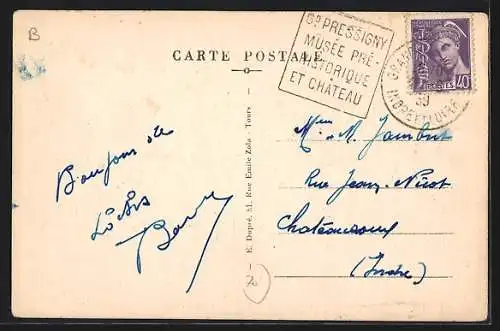 B
CARTE POSTALE
Gd PRESSIGNY
MUSÉE PRÉ-
HISTORIQUE
ET CHATEAU
POSTES 40c
INDRE ET LOIRE
39
Bonjour de
Loches
E. Dupré, 81, Rue Emile Zola - Tours
Rue Jean-
Chateauroux
(Indre)